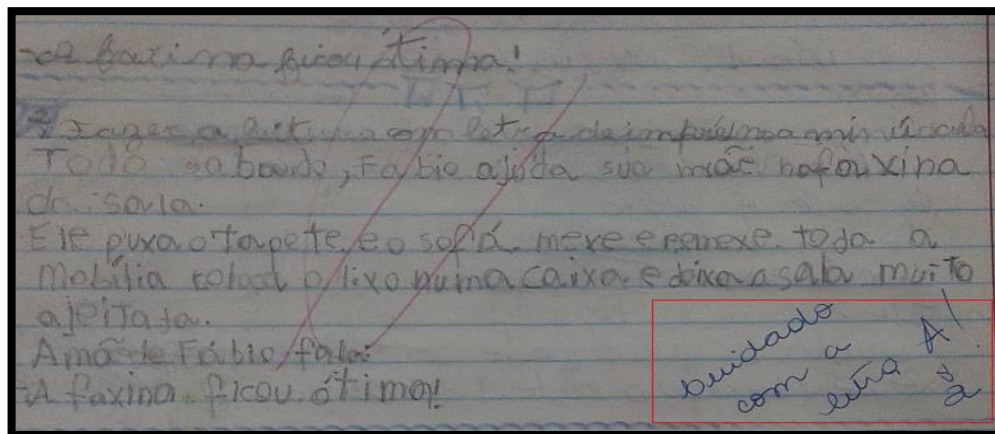 - A faxina ficou ótima!
2) Fazer a leitura com letra de imprensa minúscula
Todo sabado, Fabio ajuda sua mãe na fauxina
da sala.
Ele puxa o tapete e o sofá. mexe e remexe toda a
mobília coloca o lixo numa caixa e deixa a sala muito
ajeitada.
A mãe de Fábio fala:
-A faxina ficou ótima!
Cuidado
com a
letra A!